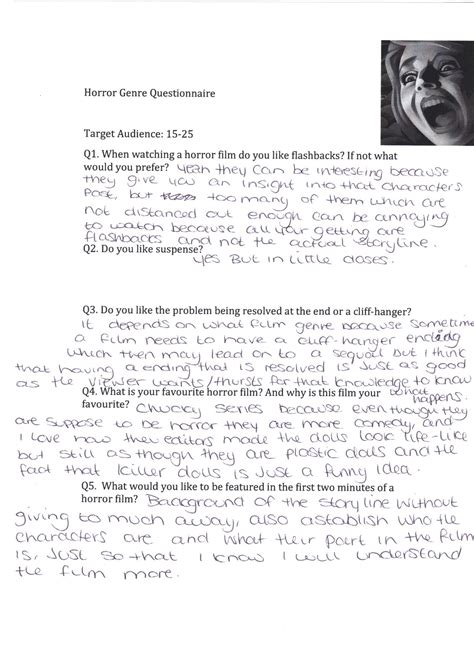 Horror Genre Questionnaire
Target Audience: 15-25
Q1. When watching a horror film do you like flashbacks? If not what
would you prefer? Yeah they can be interesting because
they give you an insight into that characters
Past, but too many of them which are
not distanced out enough can be annoying
to watch because all your getting are
flashbacks and not the actual storyline.
Q2. Do you like suspense?
Yes But in little doses.
Q3. Do you like the problem being resolved at the end or a cliff-hanger?
It depends on what film genre because sometime
a film needs to have a cliff-hanger ending
which then may lead on to a sequal but I think
that having a ending that is resolved is Just as good
as the viewer wants/thursts for that knowledge to know
what
happens.
Q4. What is your favourite horror film? And why is this film your
favourite? Chucky series because even though they
are suppose to be horror they are more comedy, and
I love how the editors made the dolls look life-like
but still as though they are plastic dolls and the
fact that killer dolls is Just a funny Idea.
Q5. What would you like to be featured in the first two minutes of a
horror film? Background of the storyline without
giving to much away, also astablish who the
characters are and what their part in the film
is, Just so that I know I will understand
the film more.